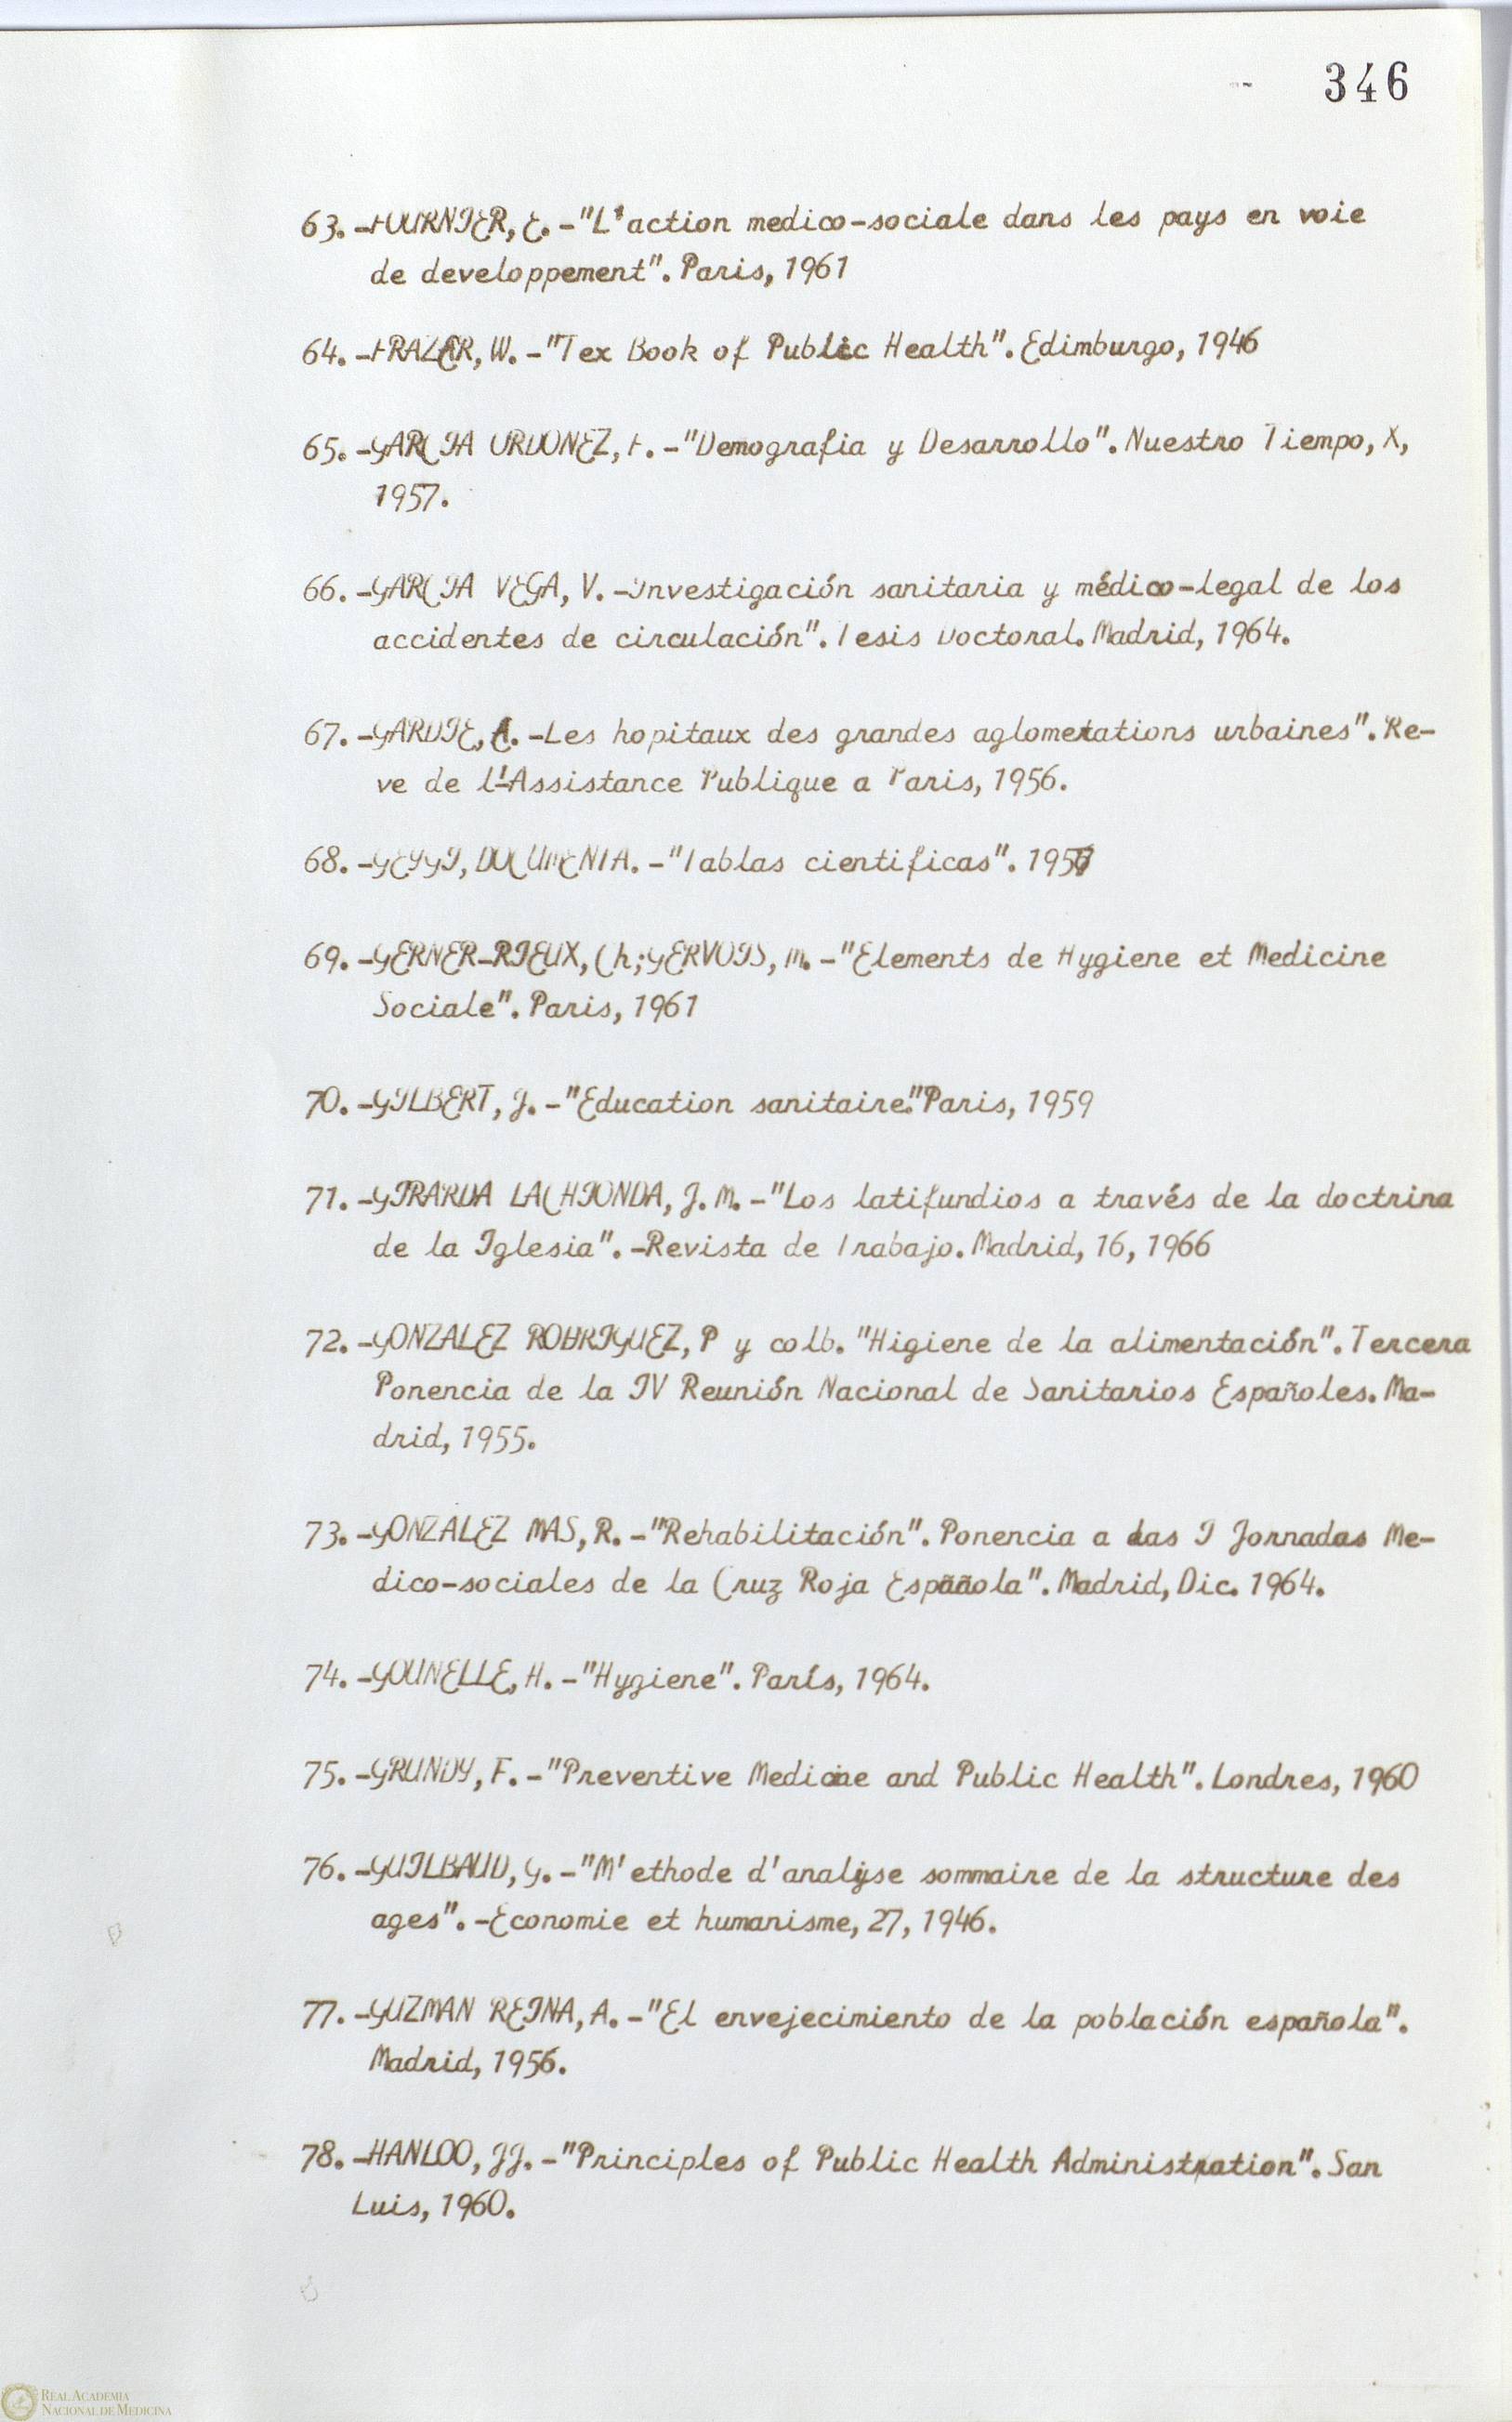 346
63.-FOURNIER, E.-"L'action medico-sociale dans les pays en voie
de developpement". Paris, 1961
64.-FRAZER, W.-"Tex Book of Public Health". Edimburgo, 1946
65.-GARCIA ORDOÑEZ, F.-"Demografia y Desarrollo". Nuestro Tiempo, X,
1957.
66.-GARCIA VEGA, V.-Investigación sanitaria y médico-legal de los
accidentes de circulación". Tesis Doctoral. Madrid, 1964.
67.-GARDIE, A.-Les hopitaux des grandes aglomerations urbaines". Re-
ve de l'Assistance Publique a Paris, 1956.
68.-GEYGI, DOCUMENTA.-"Tablas cientificas".
69.-GERNER-RIEUX, Ch;GERVOIS, M.-"Elements de Hygiene et Medicine
Sociale". Paris, 1961
70.-GILBERT, J.-"Education sanitaire."Paris, 1959
71.-GIRARDA LACHIONDA, J.M.-"Los latifundios a través de la doctrina
de la Iglesia".-Revista de Trabajo. Madrid, 16, 1966
72.-GONZALEZ RODRIGUEZ, P y colb. "Higiene de la alimentación". Tercera
Ponencia de la IV Reunión Nacional de Sanitarios Españoles. Ma-
drid, 1955.
73.-GONZALEZ MAS, R.-"Rehabilitación". Ponencia a las I Jornadas Me-
dico-sociales de la Cruz Roja Española". Madrid, Dic. 1964.
74.-GOUNELLE, H.-"Hygiene". París, 1964.
75.-GRUNDY, F.-"Preventive Medicine and Public Health". Londres, 1960
76.-GUILBAUD, G.-"M'ethode d'analyse sommaire de la structure des
ages".-Economie et humanisme, 27, 1946.
77.-GUZMAN REINA, A.-"El envejecimiento de la población española".
Madrid, 1956.
78.-HANLOO, JJ.-"Principles of Public Health Administration". San
Luis, 1960.
REAL ACADEMIA
NACIONAL DE MEDICINA